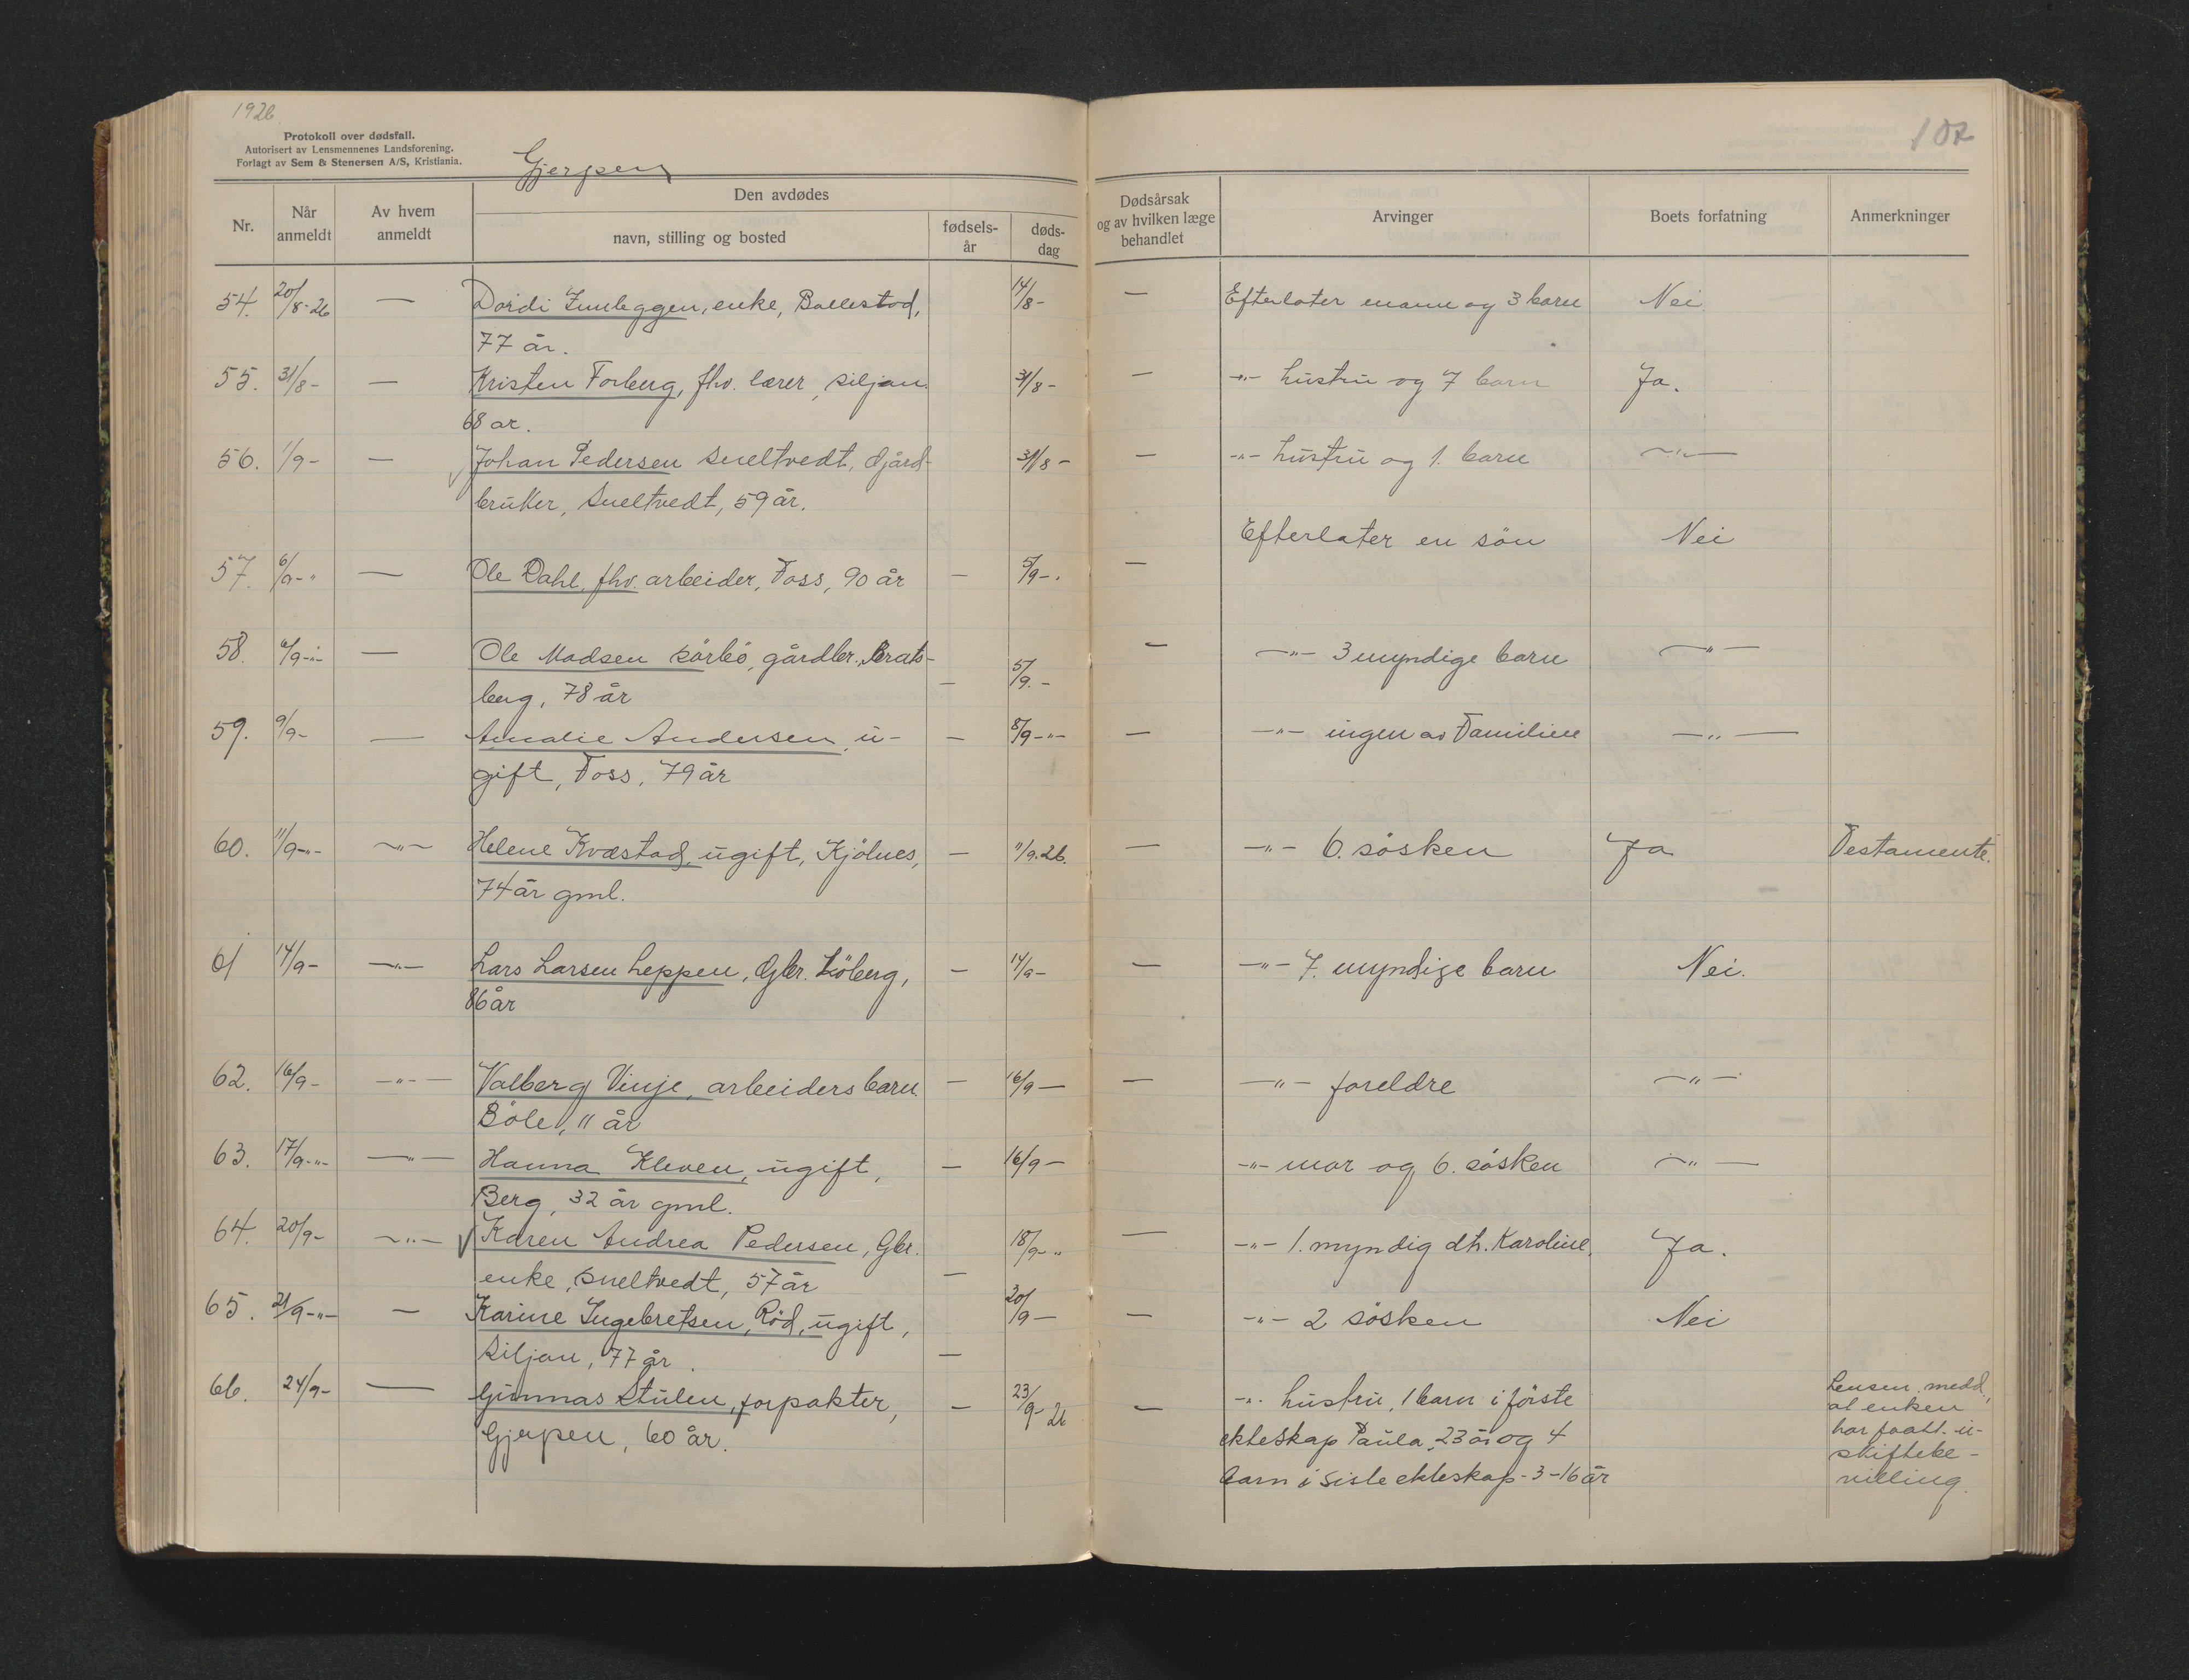 1926.
Protokoll over dødsfall.
Autorisert av Lensmennenes Landsforening.
Forlagt av Sem & Stenersen A/S, Kristiania.
Gjerpen
102
Nr.
Når anmeldt
Av hvem anmeldt
Den avdødes
navn, stilling og bosted
fødselsår
dødsdag
Dødsårsak og av hvilken læge behandlet
Arvinger
Boets forfatning
Anmerkninger
54. 20/8-26 — Dordi, enke, Ballestad, 14/8- — Efterlater mann og 3 barn Nei
77 år.
55. 31/8- — Kristen Forberg, fhv. lærer, Siljan. 31/8- — -"- hustru og 7 barn Ja.
68 ar.
56. 1/9- — Johan Pedersen Sneltvedt, Gjård- 31/8- — -"- hustru og 1. barn -"-
bruker, Sneltvedt, 59 år.
57. 6/9-" — Ole Dahl, fhv. arbeider, Foss, 90 år — 5/9-. — Efterlater en sön Nei
58. 6/9-"- — Ole Madsen Sörbö, gårdbr., Brats- — -"- 3 myndige barn -"-
berg, 78 år — 5/9.-
59. 9/9- — Amalie Andersen, u- — 8/9-"- — -"- ingen av Familien -"-
gift, Foss, 79 år
60. 11/9-"- -"- Helene Kvæstad, ugift, Kjölnes, — 11/9.26. — -"- 6. sösken Ja Testamente.
74 år gml.
61 14/9- -"- Lars Larsen Leppen, Gbr. Löberg, — 14/9- — -"- 7. myndige barn Nei.
86 år
62. 16/9- -"- Valberg Vinje, arbeiders barn. — 16/9- — -"- foreldre -"-
Böle, 11 år
63. 17/9-"- -"- Hanna Kleven, ugift, — 16/9- -"- mor og 6. sösken -"-
Berg, 32 år gml.
64. 20/9- -"- Karen Andrea Pedersen, Gbr. 18/9-" — -"- 1. myndig dtr. Karoline. Ja.
enke, Sneltvedt, 57 år —
65. 21/9-"- — Karine Ingebretsen, Röd, ugift, 20/9- — -"- 2 sösken Nei
Siljan, 77 år. —
66. 24/9- — Gunnas Stulen, forpakter, — 23/9-26 — -"- hustru, 1 barn i förste
Gjerpen, 60 år.
ekteskap Paula, 23 år og 4
barn i siste ekteskap - 3-16 år
Lensm. medd.,
at enken
har faatt u-
skiftebe-
villing.